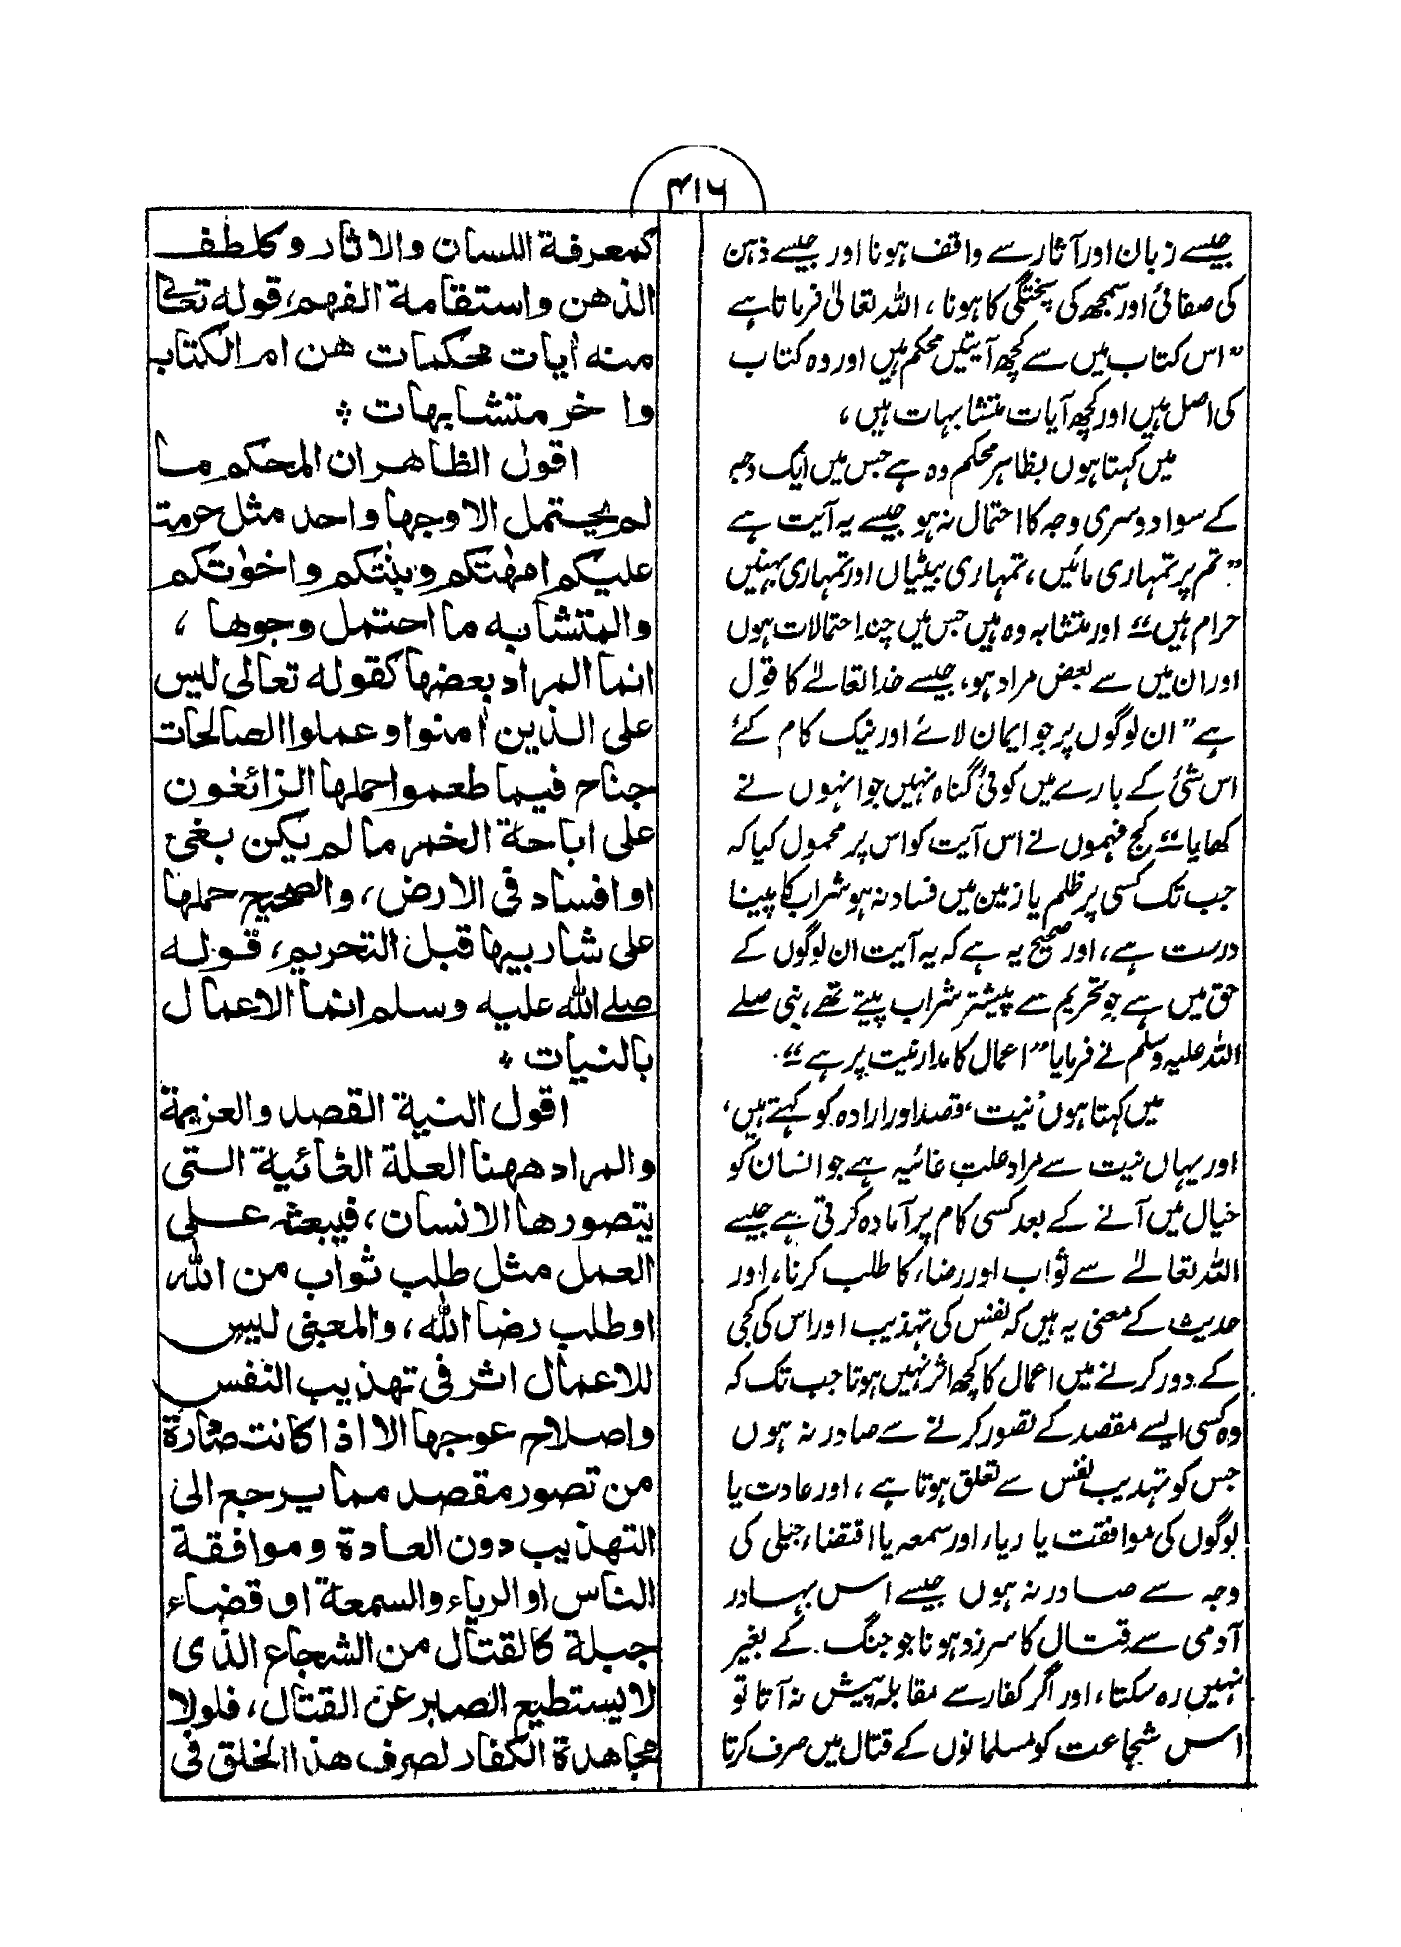 ۴۱۶
جیسے زبان اور آثار سے واقف ہونا اور جیسے ذہن
کی صفائی اور سمجھ کی پختگی کا ہونا، اللہ تعالیٰ فرماتا ہے
"اس کتاب میں سے کچھ آیتیں محکم ہیں اور وہ کتاب
کی اصل ہیں اور کچھ آیات متشابہات ہیں،
میں کہتا ہوں بظاہر محکم وہ ہے جس میں ایک وجہ
کے سوا دوسری وجہ کا احتمال نہ ہو جیسے یہ آیت ہے
"تم پر تمہاری مائیں، تمہاری بیٹیاں اور تمہاری بہنیں
حرام ہیں" اور متشابہ وہ ہیں جس میں چند احتمالات ہوں
اور ان میں سے بعض مراد ہو، جیسے خدا تعالےٰ کا قول
ہے" ان لوگوں پر جو ایمان لائے اور نیک کام کئے
اس شئی کے بارے میں کوئی گناہ نہیں جو انہوں نے
کھایا" کج فہموں نے اس آیت کو اس پر محمول کیا کہ
جب تک کسی پر ظلم یا زمین میں فساد نہ ہو شراب کا پینا
درست ہے، اور صحیح یہ ہے کہ یہ آیت ان لوگوں کے
حق میں ہے جو تحریم سے پیشتر شراب پیتے تھے، نبی صلے
اللہ علیہ وسلم نے فرمایا" اعمال کا مدار نیت پر ہے"۔
میں کہتا ہوں نیت، قصد اور ارادہ کو کہتے ہیں،
اور یہاں نیت سے مراد علت غائیہ ہے جو انسان کو
خیال میں آنے کے بعد کسی کام پر آمادہ کرتی ہے جیسے
اللہ تعالےٰ سے ثواب اور رضاء کا طلب کرنا، اور
حدیث کے معنی یہ ہیں کہ نفس کی تہذیب اور اس کی کجی
کے دور کرنے میں اعمال کا کچھ اثر نہیں ہوتا جب تک کہ
وہ کسی ایسے مقصد کے تصور کرنے سے صادر نہ ہوں
جس کو تہذیب نفس سے تعلق ہوتا ہے، اور عادت یا
لوگوں کی موافقت یا ریاء اور سمعہ یا اقتضاء جبلی کی
وجہ سے صادر نہ ہوں جیسے اس بہادر
آدمی سے قتال کا سرزد ہونا جو جنگ کے بغیر
نہیں رہ سکتا، اور اگر کفار سے مقابلہ پیش نہ آتا تو
اس شجاعت کو مسلمانوں کے قتال میں صرف کرتا
كمعرفة اللسان والاثار وكلطف
الذهن واستقامة الفهم، قوله تعالى
منه أيات محكمات هن ام الكتاب
واخر متشابهات
اقول الظاهر ان المحكم ما
لم يحتمل الا وجها واحد مثل حرمت
عليكم امهتكم وبنتكم واخوتكم
والمتشابه ما احتمل وجوها ،
انما المراد بعضها كقوله تعالى ليس
على الذين أمنوا وعملوا الصالحات
جناح فيما طعموا حملها الزائغون
على اباحة الخمر ما لم يكن بغى
او افساد فى الارض، والصحيح حملها
على شاربيها قبل التحريم، قوله
صلے الله عليه وسلم انما الاعمال
بالنيات
اقول النية القصد والعزيمة
والمراد ههنا العلة الغائية التى
يتصورها الانسان، فيبعثه على
العمل مثل طلب ثواب من الله
او طلب رضا الله، والمعنى ليس
للاعمال اثر فى تهذيب النفس
واصلاح عوجها الا اذا كانت صادرة
من تصور مقصد مما يرجع الى
التهذيب دون العادة وموافقة
الناس او الرياء والسمعة او قضاء
جبلة كالقتال من الشجاع الذى
لا يستطيع الصابر عن القتال، فلولا
مجاهدة الكفار لصرف هذا الخلق فى